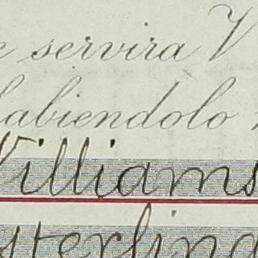 e servira V
habiendolo
Williams
sterling